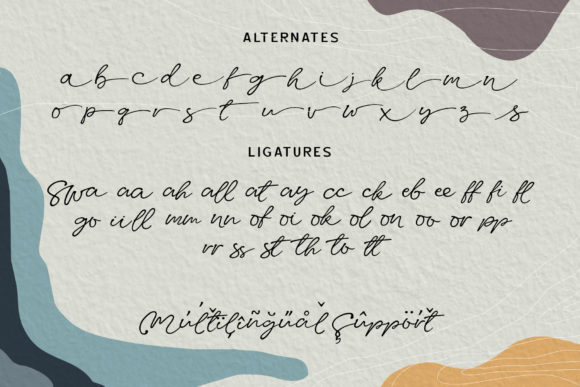 ALTERNATES
a b c d e f g h i j k l m n
o p q r s t u v w x y z s
LIGATURES
Swa aa ah all at ay cc ck eb ee ff fi fl
go ii ll mm nn of oi ok ol on oo or pp
rr ss st th to tt
Múľťïļîñğűåľ Şûppöřť